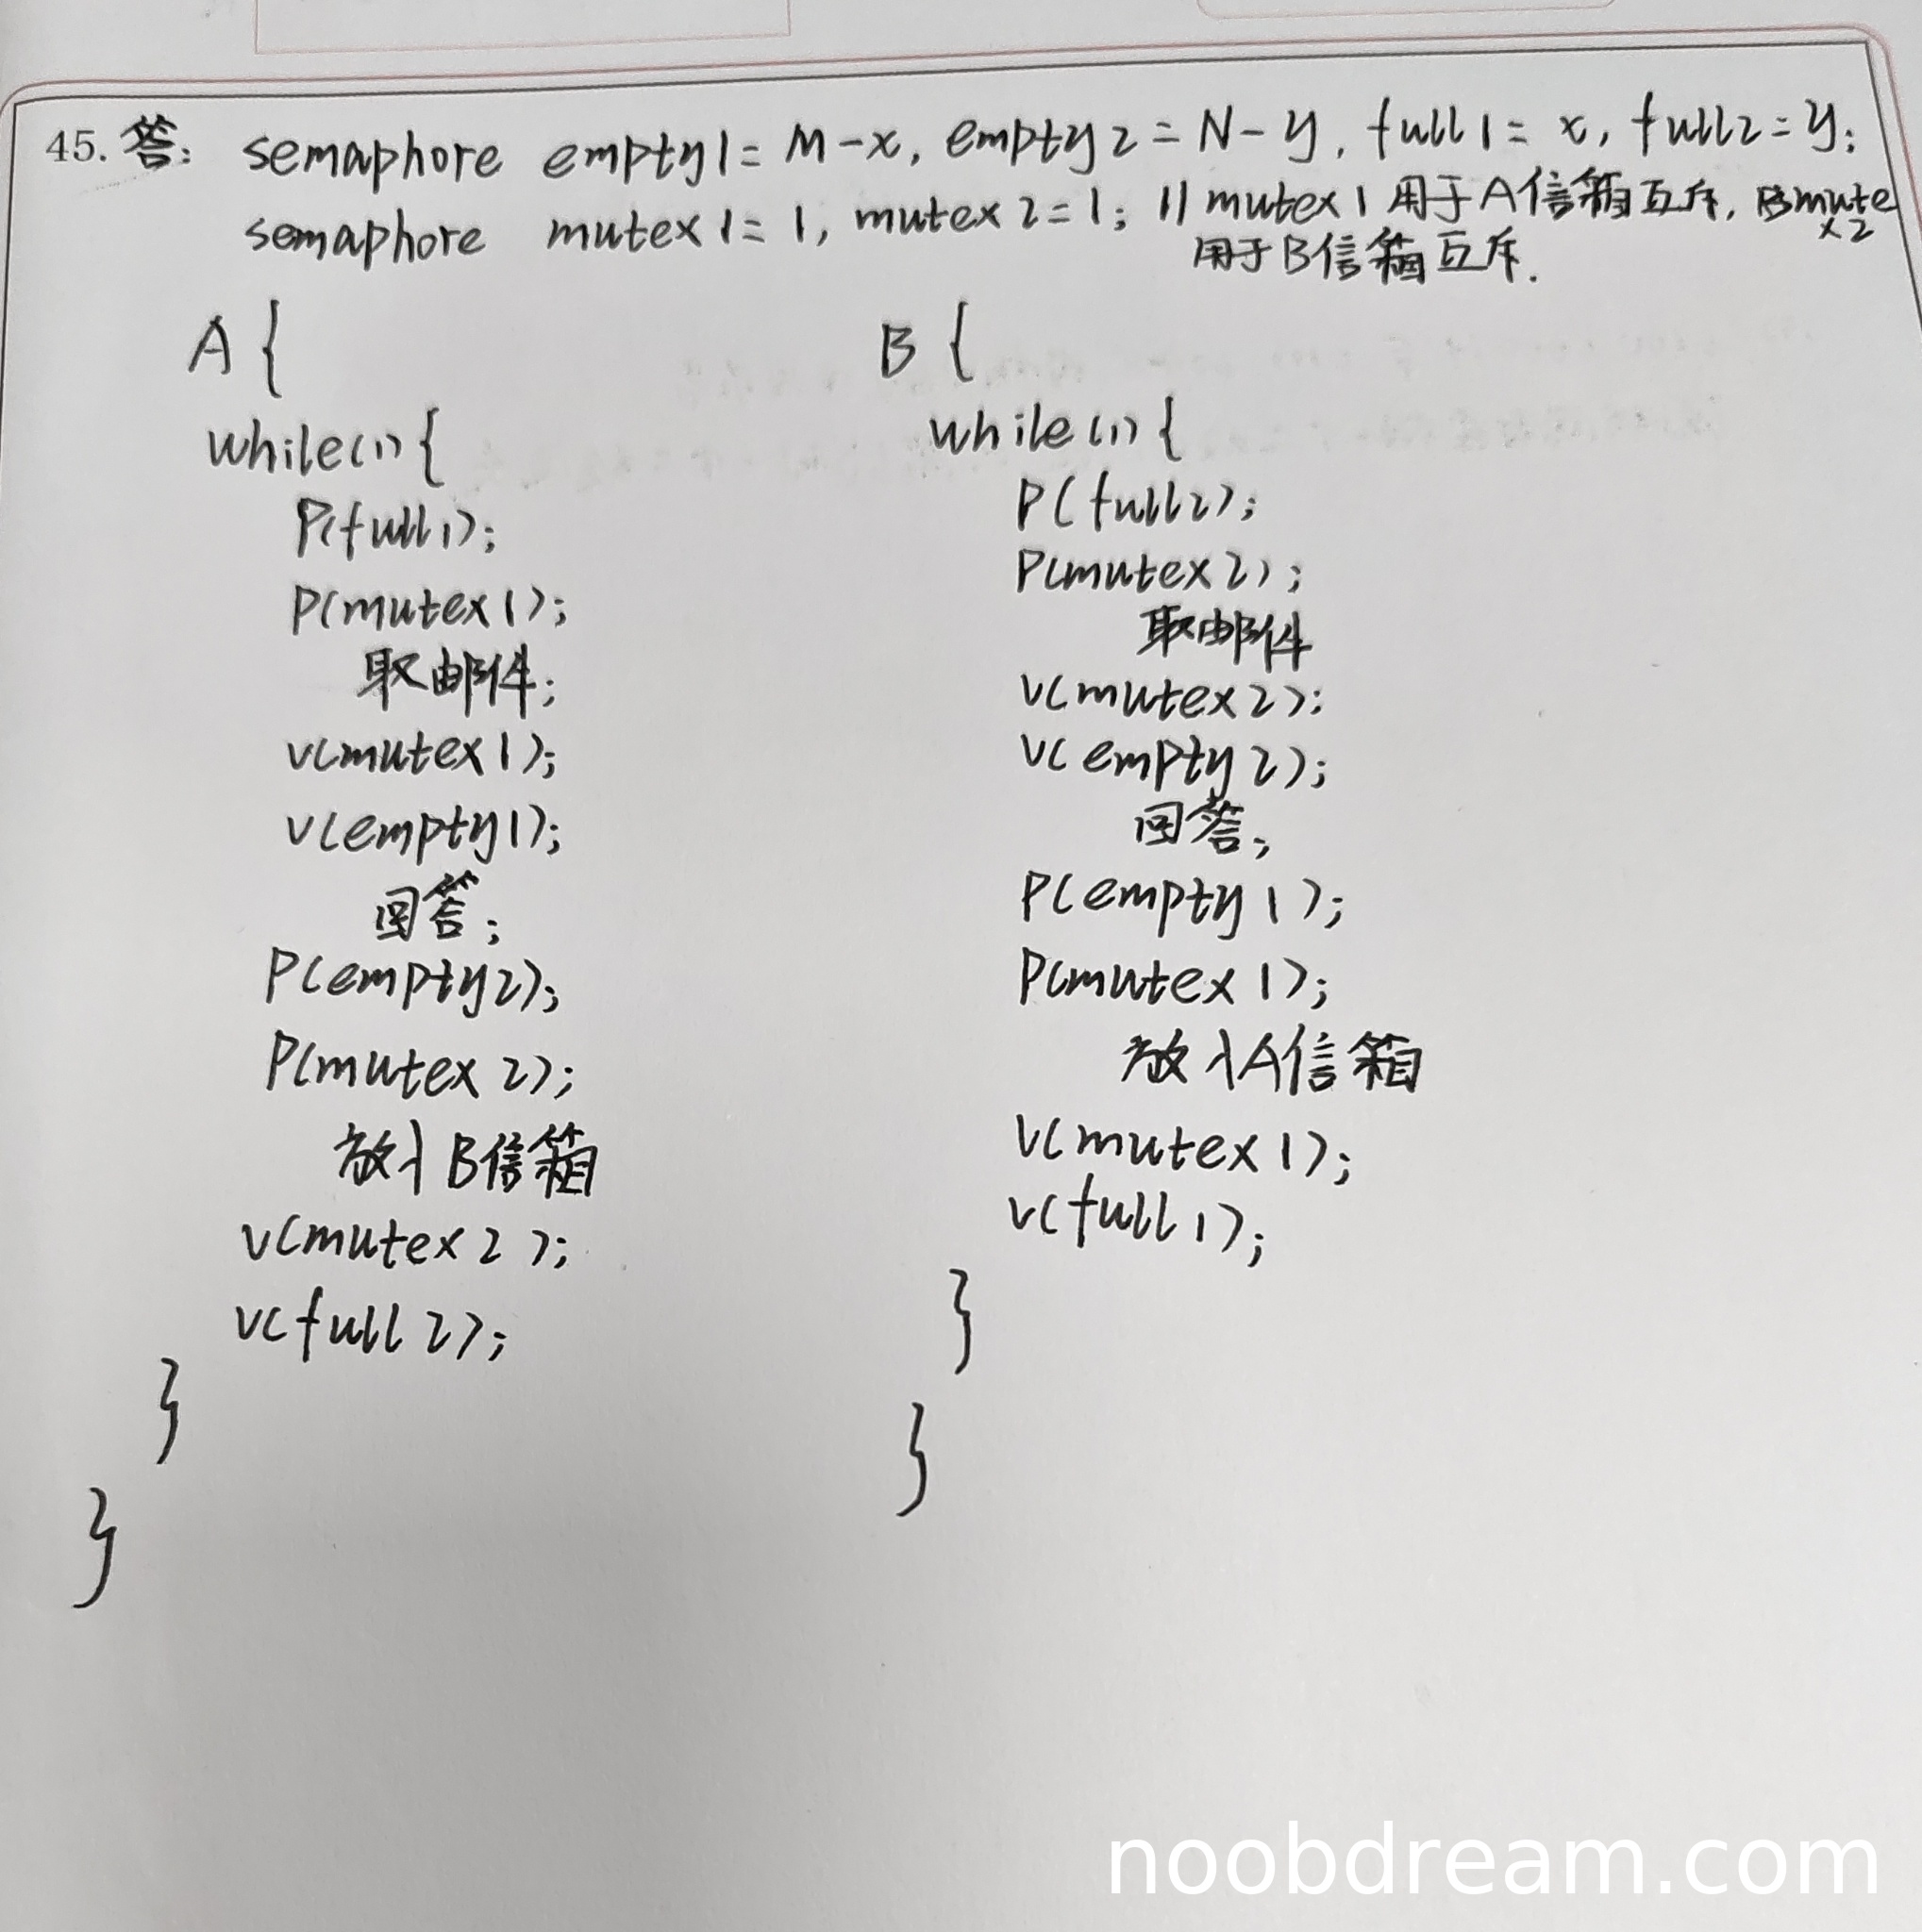 45. 答: semaphore empty1 = M-x, empty2 = N-y, full1 = x, full2 = y;
semaphore mutex1 = 1, mutex2 = 1; // mutex1 用于A信箱互斥, mute
x2
用于B信箱互斥.
A {
while(1) {
P(full1);
P(mutex1);
取邮件;
V(mutex1);
V(empty1);
回答;
P(empty2);
P(mutex2);
放入B信箱
V(mutex2);
V(full2);
}
}
B {
while(1) {
P(full2);
P(mutex2);
取邮件
V(mutex2);
V(empty2);
回答;
P(empty1);
P(mutex1);
放入A信箱
V(mutex1);
V(full1);
}
}
noobdream.com